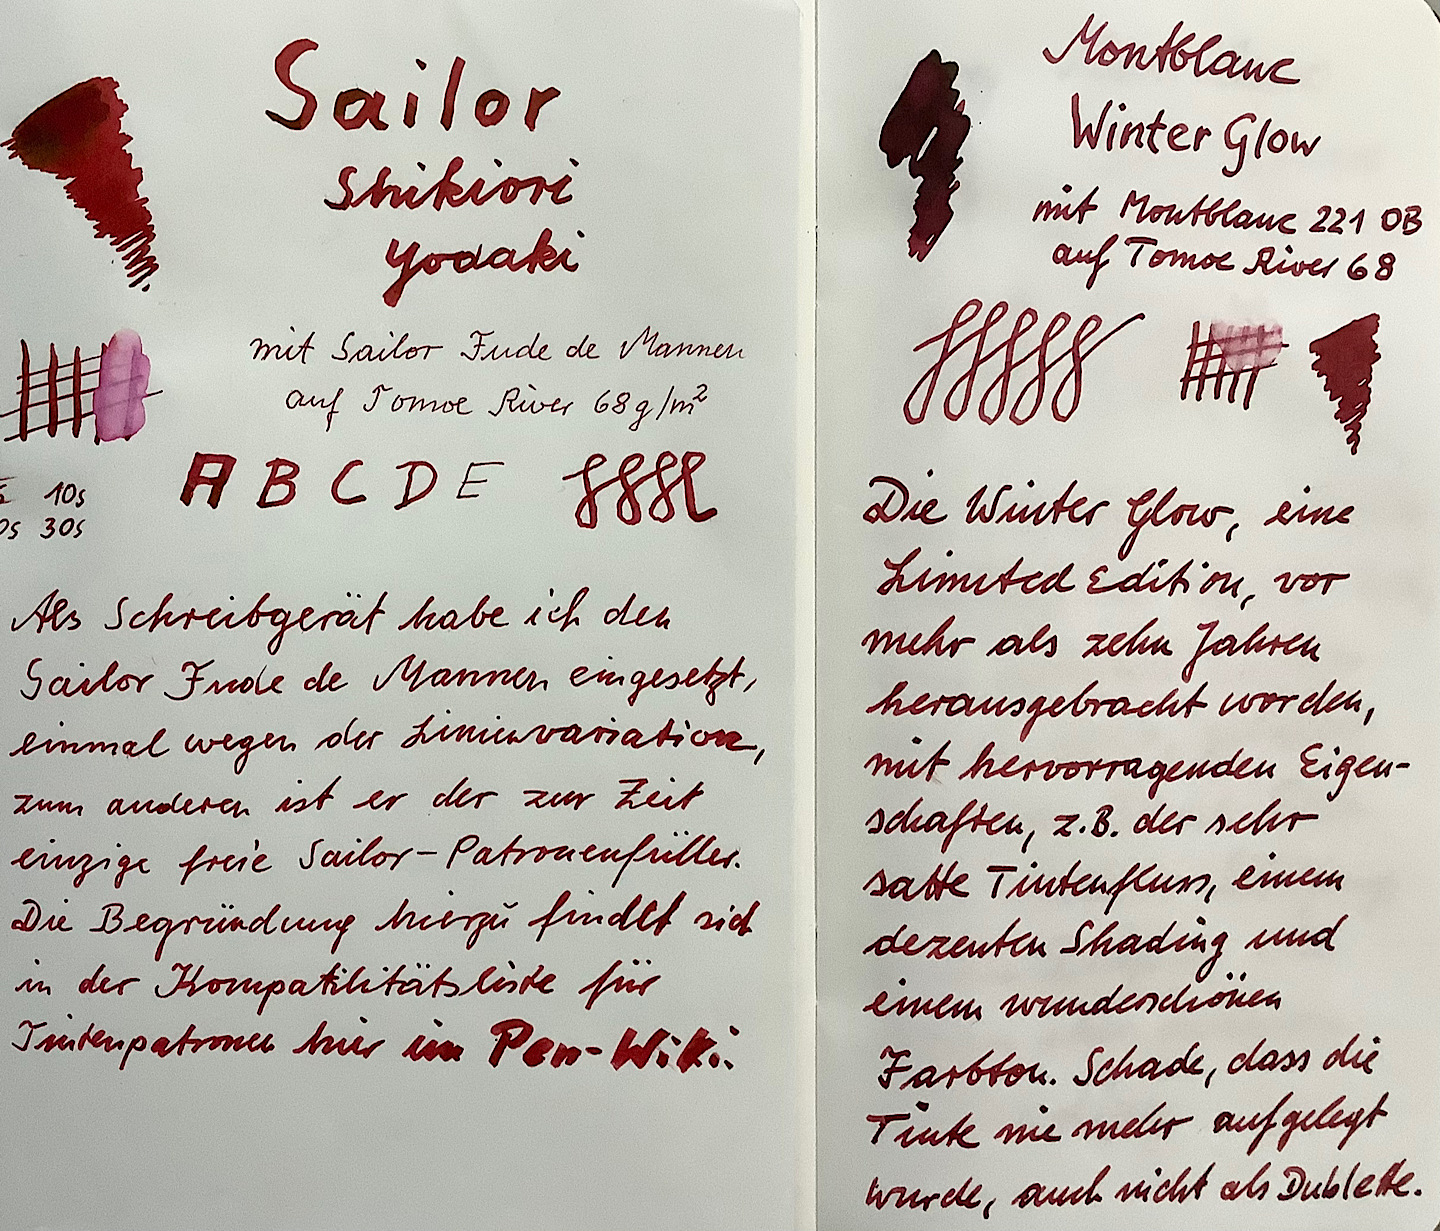 Sailor
Shikiori
Yodaki
mit Sailor Fude de Mannen
auf Tomoe River 68g/m²
A B C D E
10s
0s 30s
Als Schreibgerät habe ich den
Sailor Fude de Mannen eingesetzt,
einmal wegen der Linienvariation,
zum anderen ist er der zur Zeit
einzige freie Sailor-Patronenfüller.
Die Begründung hierzu findet sich
in der Kompatilitätsliste für
Tintenpatronen hier im Pen-Wiki.
Montblanc
Winter Glow
mit Montblanc 221 OB
auf Tomoe River 68
Die Winter Glow, eine
Limited Edition, vor
mehr als zehn Jahren
herausgebracht worden,
mit hervorragenden Eigen-
schaften, z.B. der sehr
satte Tintenfluss, einem
dezenten Shading und
einem wunderschönen
Farbton. Schade, dass die
Tinte nie mehr aufgelegt
wurde, auch nicht als Dublette.